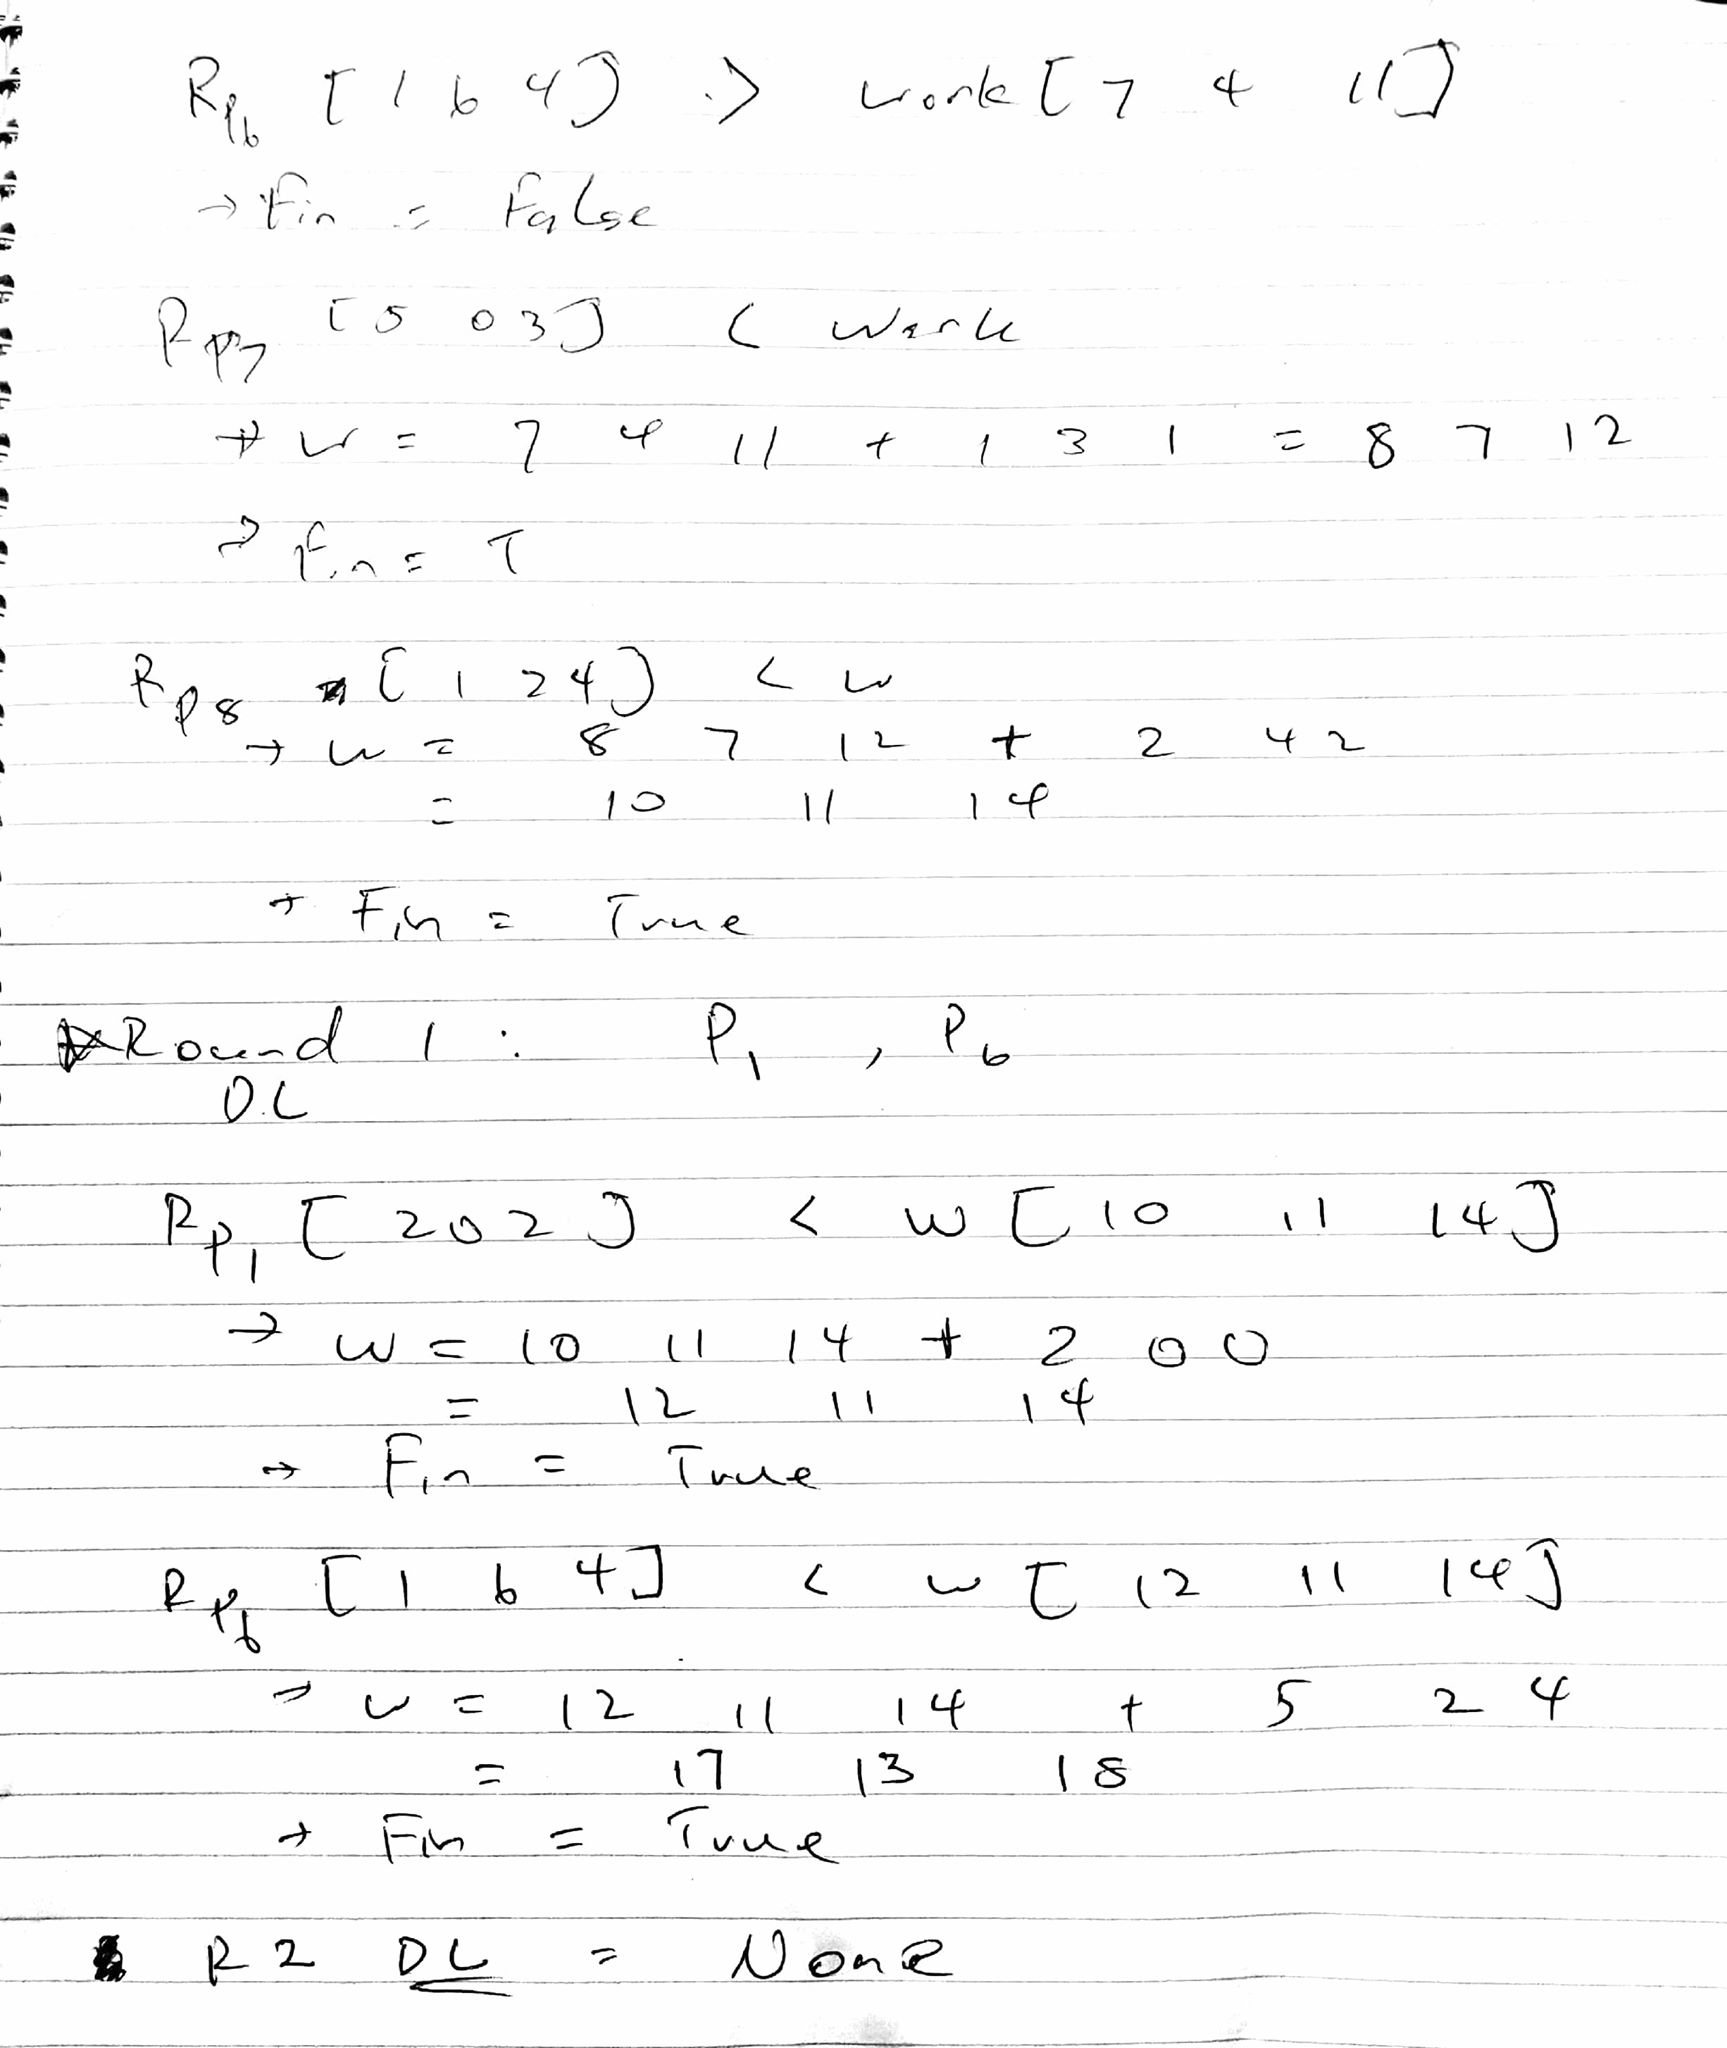 Rp6 [ 1 6 4 ] > work [ 7 4 11 ]
→ Fin = False
Rp7 [ 5 0 3 ] < Work
→ W = 7 4 11 + 1 3 1 = 8 7 12
→ Fin = T
Rp8 [ 1 2 4 ] < W
→ W = 8 7 12 + 2 4 2
= 10 11 14
→ Fin = True
Round 1 : P1 , P6
DL
Rp1 [ 2 0 2 ] < W [ 10 11 14 ]
→ W = 10 11 14 + 2 0 0
= 12 11 14
→ Fin = True
Rp6 [ 1 6 4 ] < W [ 12 11 14 ]
→ W = 12 11 14 + 5 2 4
= 17 13 18
→ Fin = True
R2 DL = None